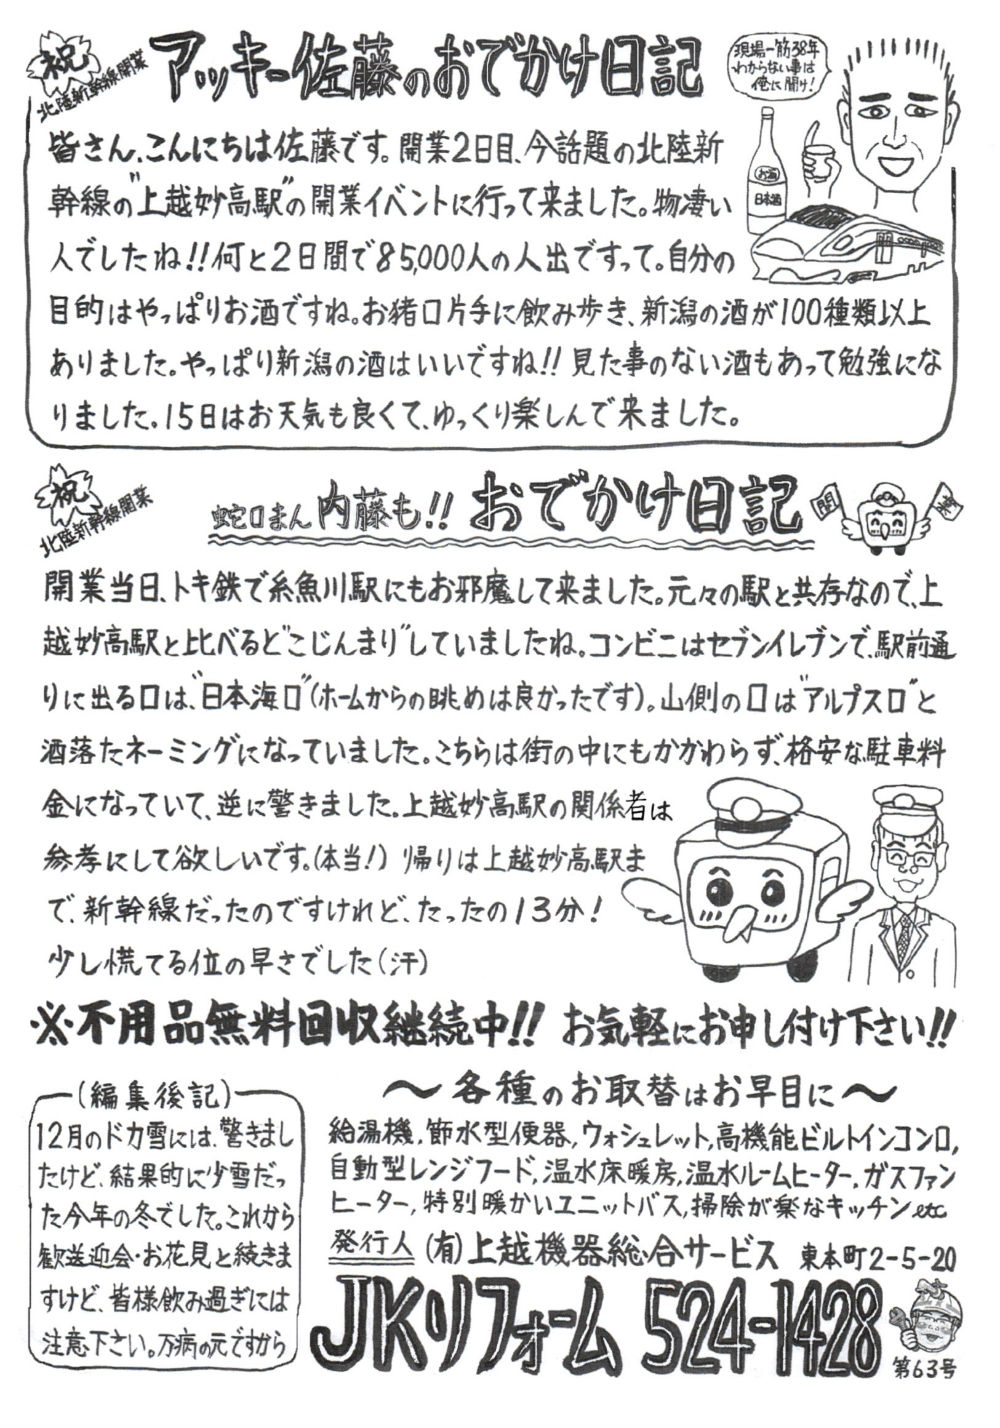 祝
北陸新幹線開業
アッキー佐藤のおでかけ日記
現場一筋38年
わからない事は
俺に聞け!
お酒
日本酒
皆さん、こんにちは佐藤です。開業2日目、今話題の北陸新
幹線の"上越妙高駅"の開業イベントに行って来ました。物凄い
人でしたね!!何と2日間で85,000人の人出ですって。自分の
目的はやっぱりお酒ですね。お猪口片手に飲み歩き、新潟の酒が100種類以上
ありました。やっぱり新潟の酒はいいですね!!見た事のない酒もあって勉強にな
りました。15日はお天気も良くて、ゆっくり楽しんで来ました。
祝
北陸新幹線開業
蛇口まん内藤も!!おでかけ日記
開 業
開業当日、トキ鉄で糸魚川駅にもお邪魔して来ました。元々の駅と共存なので、上
越妙高駅と比べると"こじんまり"していましたね。コンビニはセブンイレブンで、駅前通
りに出る口は、"日本海口"(ホームからの眺めは良かったです)。山側の口は"アルプス口"と
洒落たネーミングになっていました。こちらは街の中にもかかわらず、格安な駐車料
金になっていて、逆に驚きました。上越妙高駅の関係者は
参考にして欲しいです。(本当!) 帰りは上越妙高駅ま
で、新幹線だったのですけれど、たったの13分!
少し慌てる位の早さでした(汗)
※不用品無料回収継続中!! お気軽にお申し付け下さい!!
(編集後記)
12月のドカ雪には、驚きまし
たけど、結果的に少雪だっ
た今年の冬でした。これから
歓送迎会・お花見と続きま
すけど、皆様飲み過ぎには
注意下さい。万病の元ですから
〜各種のお取替はお早目に〜
給湯機,節水型便器,ウォシュレット,高機能ビルトインコンロ,
自動型レンジフード,温水床暖房,温水ルームヒーター,ガスファン
ヒーター,特別暖かいユニットバス,掃除が楽なキッチンetc
発行人 (有)上越機器総合サービス 東本町2-5-20
JKリフォーム 524-1428
第63号